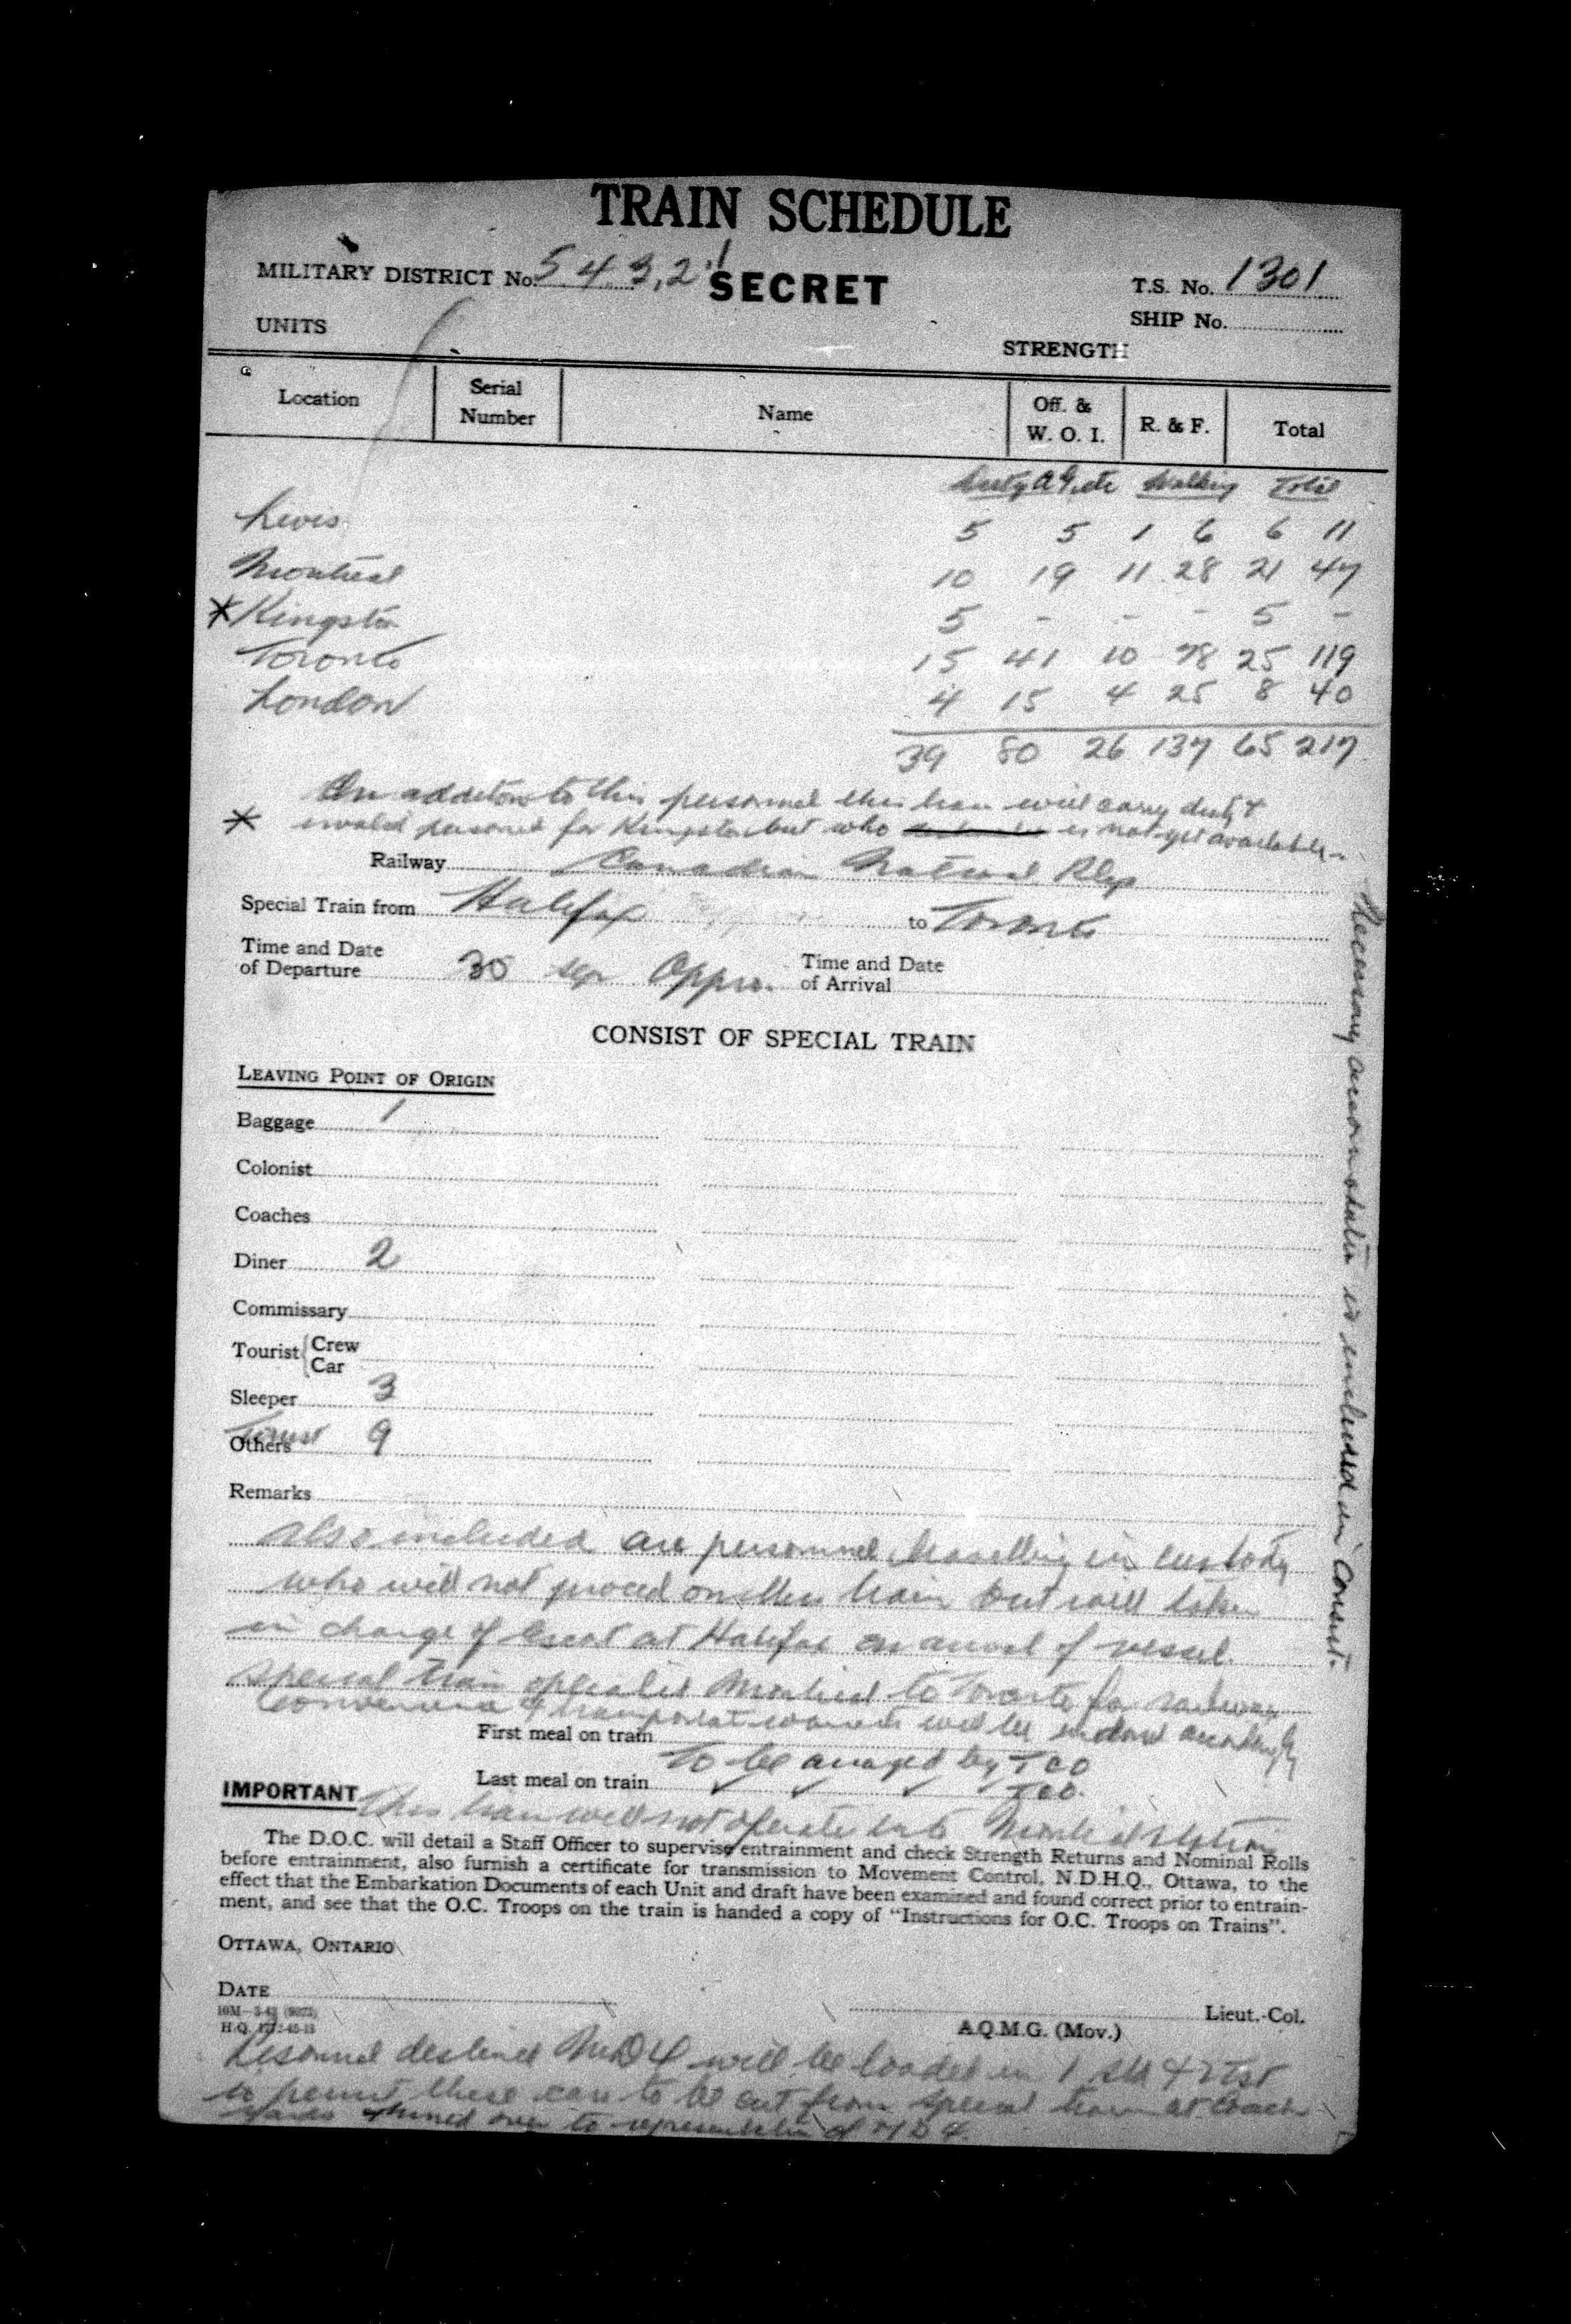 TRAIN SCHEDULE
MILITARY DISTRICT No. 5 4 3, 2, 1 SECRET T.S. No. 1301
SHIP No.
UNITS STRENGTH
Location Serial Number Name Off. & W. O. I. R. & F. Total
Duty Walking Total
Levis 5 5 1 6 6 11
Montreal 10 19 11 28 21 47
* Kingston 5 - - - 5 -
Toronto 15 41 10 78 25 119
London 4 15 4 25 8 40
39 80 26 137 65 217
In addition to this personnel this train will carry duty &
* invalid personnel for Kingston but who is not yet available
Railway Canadian National Rlys
Special Train from Halifax to Toronto
Time and Date of Departure 30 Sep Appro. Time and Date of Arrival
CONSIST OF SPECIAL TRAIN
LEAVING POINT OF ORIGIN
Baggage 1
Colonist
Coaches
Diner 2
Commissary
Tourist { Crew
Car
Sleeper 3
Tourist
Others 9
Remarks
Also included are personnel travelling in custody
who will not proceed on this train but will taken
in charge of Escort at Halifax on arrival of vessel.
Special train operates Montreal to Toronto for railway
convenience & transport warrants will be endorsed accordingly
First meal on train To be arranged by TCO
Last meal on train ✓ ✓ ✓ TCO.
IMPORTANT This train will not operate into Montreal station
The D.O.C. will detail a Staff Officer to supervise entrainment and check Strength Returns and Nominal Rolls
before entrainment, also furnish a certificate for transmission to Movement Control, N.D.H.Q., Ottawa, to the
effect that the Embarkation Documents of each Unit and draft have been examined and found correct prior to entrain-
ment, and see that the O.C. Troops on the train is handed a copy of "Instructions for O.C. Troops on Trains".
OTTAWA, ONTARIO
DATE
Lieut.-Col.
10M—3-43
H.Q.
A.Q.M.G. (Mov.)
Personnel destined MD 4 will be loaded in 1 & 2 Tst
to permit these cars to be cut from special train at Coach
yards & turned over to representative of MD 4.
Necessary accommodation is included in Consist.